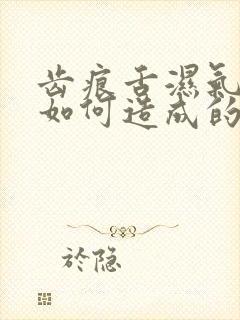 齿痕舌濕氣
如何造成的
於隐